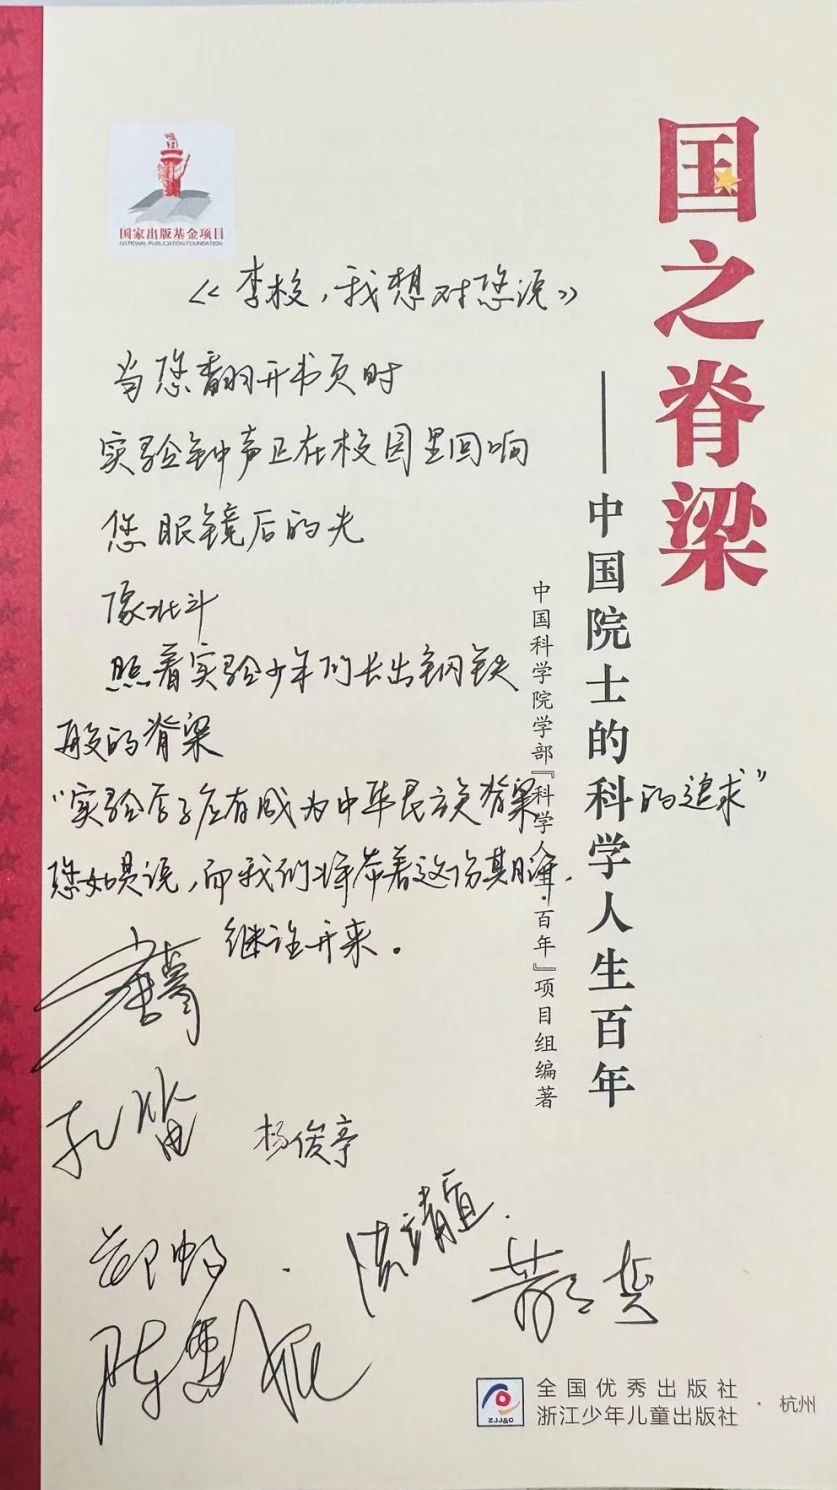 国之脊梁
——中国院士的科学人生百年
中国科学院学部『科学人生·百年』项目组编著
国家出版基金项目
NATIONAL PUBLICATION FOUNDATION
《李校，我想对您说》
当您翻开书页时
实验钟声正在校园里回响
您眼镜后的光
像北斗
照着实验少年们长出钢铁
般的脊梁
“实验学子应有成为中华民族脊梁的追求”
您如是说，而我们将带着这份期许，
继往开来。
孔笛
杨俊亭
全国优秀出版社
浙江少年儿童出版社 · 杭州
ZJJ&C